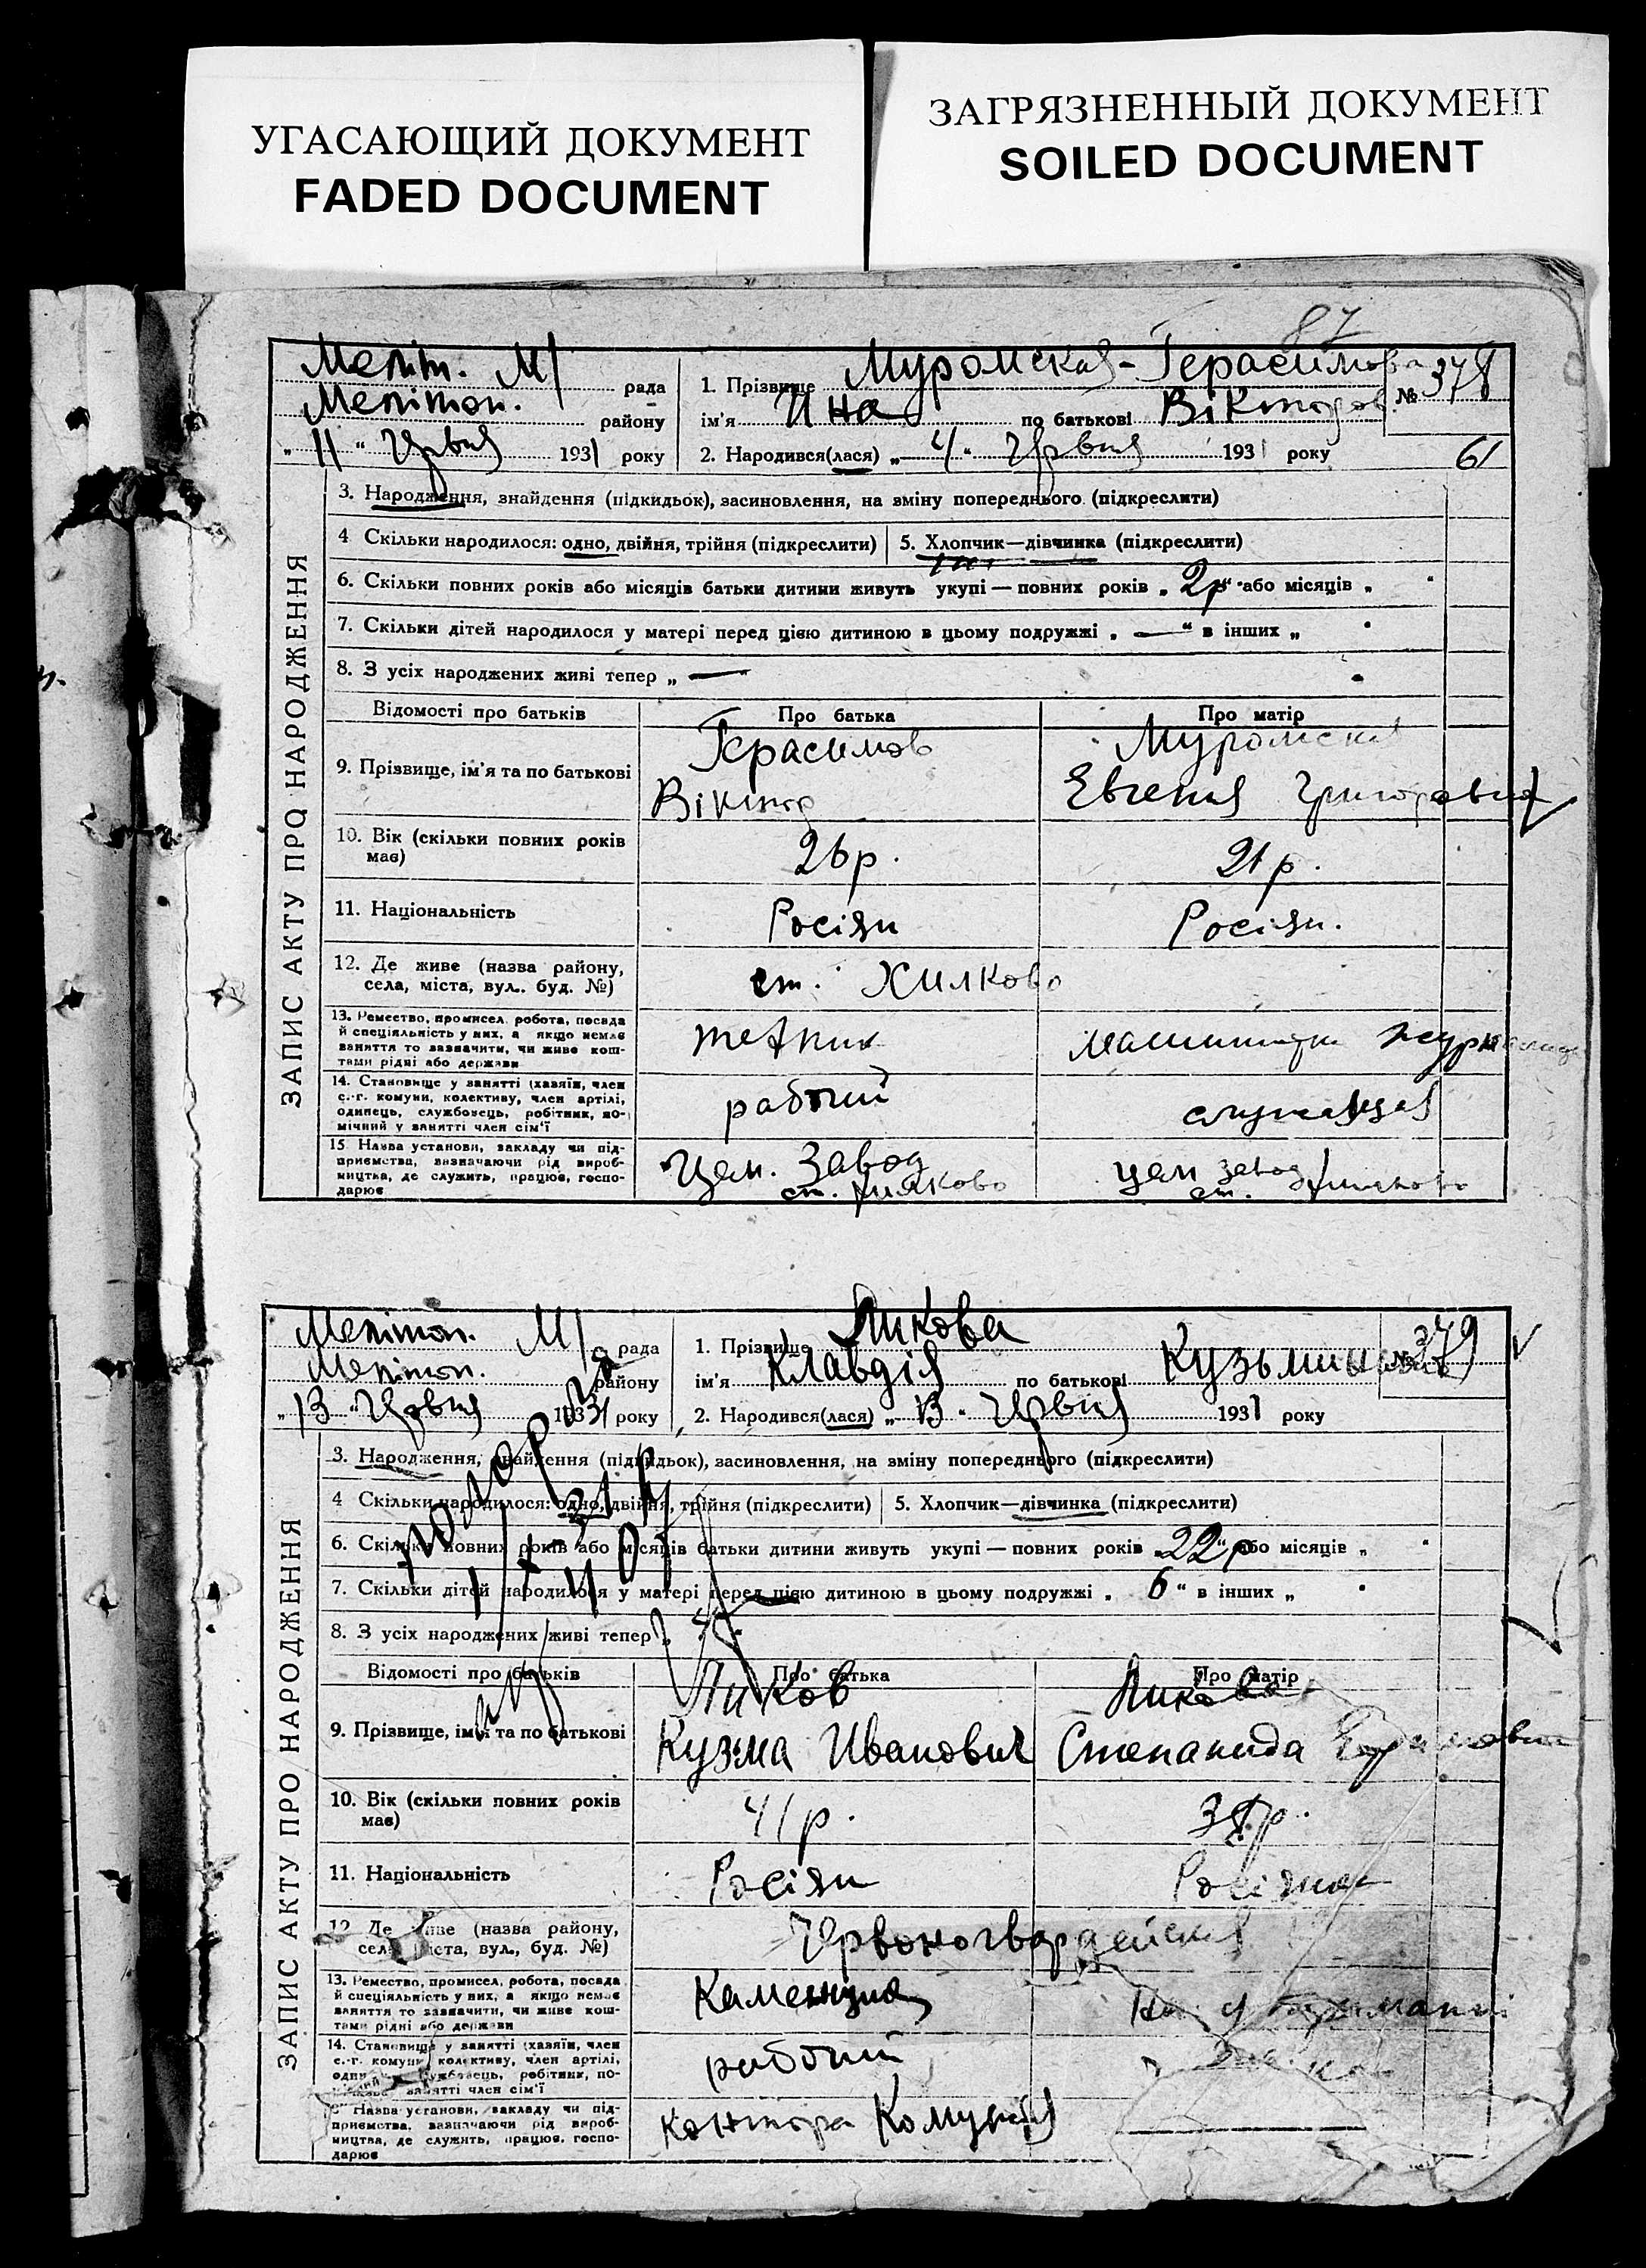 УГАСАЮЩИЙ ДОКУМЕНТ
FADED DOCUMENT
ЗАГРЯЗНЕННЫЙ ДОКУМЕНТ
SOILED DOCUMENT
87
ЗАПИС АКТУ ПРО НАРОДЖЕННЯ
Меліт. М/ рада
Мелітоп. району
„11“ Червня 1931 року
1. Прізвище Муромская-Герасимова
ім'я Ина по батькові Вікторов.
№ 378
2. Народився(лася) „4“ Червня 1931 року
61
3. Народження, знайдення (підкидьок), засиновлення, на зміну попереднього (підкреслити)
4 Скільки народилося: одно, двійня, трійня (підкреслити) 5. Хлопчик—дівчинка (підкреслити)
6. Скільки повних років або місяців батьки дитини живуть укупі — повних років „2р“ або місяців „ “
7. Скільки дітей народилося у матері перед цією дитиною в цьому подружжі „—“ в інших „ “
8. З усіх народжених живі тепер „ —
Відомості про батьків Про батька Про матір
9. Прізвище, ім'я та по батькові Герасимов Віктор Муромская Евгения Григоровна
10. Вік (скільки повних років має) 26 р. 21 р.
11. Національність Росіян Росіян.
12. Де живе (назва району, села, міста, вул., буд. №) ст. Хилково
13. Ремество, промисел, робота, посада й спеціяльність у них, а якщо немає заняття то зазначити, чи живе коштами рідні або держави техник
14. Становище у занятті (хазяїн, член с.-г. комуни, колективу, член артілі, одинець, службовець, робітник, помічний у занятті член сім'ї рабочий служащая
15 Назва установи, закладу чи підприємства, зазначаючи рід виробництва, де служить, працює, господарює Цем. завод ст. Хилково цем завод ст. Хилково
ЗАПИС АКТУ ПРО НАРОДЖЕННЯ
Мелітоп. М/ рада
Мелітоп. району
„13“ Червня 1931 року
1. Прізвище Ликова
ім'я Клавдія по батькові
379
2. Народився(лася) „13“ Червня 1931 року
3. Народження, знайдення (підкидьок), засиновлення, на зміну попереднього (підкреслити)
4 Скільки народилося: одно, двійня, трійня (підкреслити) 5. Хлопчик—дівчинка (підкреслити)
6. Скільки повних років або місяців батьки дитини живуть укупі — повних років „22“ р або місяців „ “
7. Скільки дітей народилося у матері перед цією дитиною в цьому подружжі „6“ в інших „ “
8. З усіх народжених живі тепер „
Відомості про батьків Про батька Про матір
9. Прізвище, ім'я та по батькові Ликов Кузма Иванович Ликова Степанида
10. Вік (скільки повних років має) 41 р.
11. Національність Росіян Росіянка
12. Де живе (назва району, села, міста, вул., буд. №) Червоногвардейская
13. Ремество, промисел, робота, посада й спеціяльність у них, а якщо немає заняття то зазначити, чи живе коштами рідні або держави Каменщик
14. Становище у занятті (хазяїн, член с.-г. комуни, колективу, член артілі, одинець, службовець, робітник, помічний у занятті член сім'ї рабочий
15 Назва установи, закладу чи підприємства, зазначаючи рід виробництва, де служить, працює, господарює контора